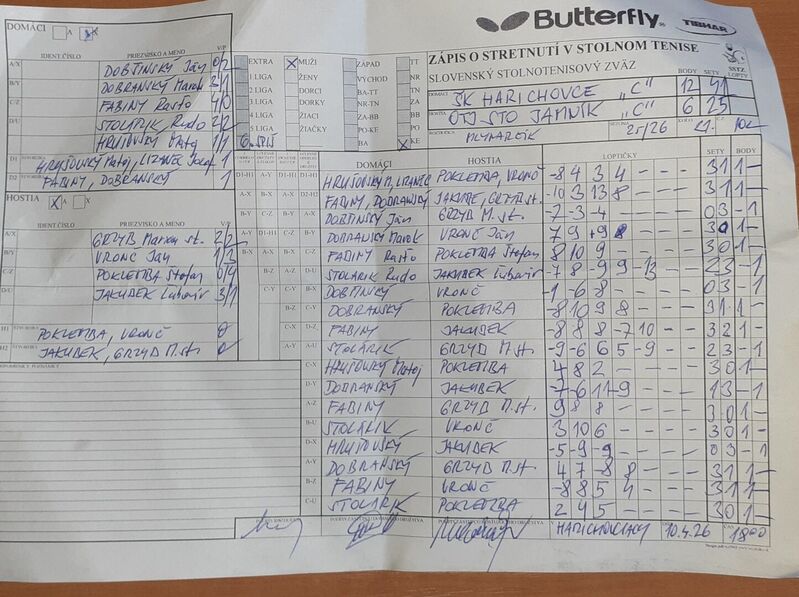 Butterfly
TIBHAR
DOMÁCI A X
IDENT. ČÍSLO PRIEZVISKO A MENO V/P
A/X DOBŠINSKÝ Ján 0/2
B/Y DOBRANSKÝ Marek 3/1
C/Z FABINY Rasťo 4/0
D/U STOLÁRIK Rudo 2/2
HRUŠOVSKÝ Matej 1/1
D1 HRUŠOVSKÝ Matej, LIZANEC 1
D2 FABINY, DOBRANSKÝ 1
HOSTIA X A X
IDENT. ČÍSLO PRIEZVISKO A MENO V/P
A/X GRZYB Marian st. 2/2
B/Y VRONČ Ján 1/3
C/Z POKLEMBA Štefan 0/4
D/U JAKUBEK Ľubomír 3/1
H1 POKLEMBA, VRONČ 0
H2 JAKUBEK, GRZYB M. st. 0
EXTRA X MUŽI ZÁPAD TT
1.LIGA ŽENY VÝCHOD NR
2.LIGA DORCI BA-TT
3.LIGA DORKY NR-TN ZA
4.LIGA ŽIACI ZA-BB
5.LIGA ŽIAČKY PO-KE
BA X KE
ZÁPIS O STRETNUTÍ V STOLNOM TENISE
SLOVENSKÝ STOLNOTENISOVÝ ZVÄZ
BODY SETY LOPTY
DOMÁCI ŠK HARICHOVCE "C" 12 41
HOSTIA OTJ STO JAMNÍK "C" 6 25
MLYNARČÍK 25/26 21.
DOMÁCI HOSTIA LOPTIČKY SETY BODY
D1-H1 HRUŠOVSKÝ M, LIZANEC POKLEMBA, VRONČ -8 4 3 4 - - - 3 1 1 -
D2-H2 FABINY, DOBRANSKÝ JAKUBEK, GRZYB st. -10 3 13 8 - - - 3 1 1 -
DOBŠINSKÝ Ján GRZYB M. st. -7 -3 -4 - - - - 0 3 - 1
DOBRANSKÝ Marek VRONČ Ján 7 9 9 - - - - 3 0 1 -
FABINY Rasťo POKLEMBA Štefan 8 10 9 - - - - 3 0 1 -
STOLÁRIK Rudo JAKUBEK Ľubomír -7 8 -9 9 -13 - - 2 3 - 1
DOBŠINSKÝ VRONČ -1 -6 -8 - - - - 0 3 - 1
DOBRANSKÝ POKLEMBA -8 10 9 8 - - - 3 1 1 -
FABINY JAKUBEK -8 8 8 -7 10 - - 3 2 1 -
A-U STOLÁRIK GRZYB M. st. -9 -6 6 5 -9 - - 2 3 - 1
C-X HRUŠOVSKÝ Matej POKLEMBA 4 8 2 - - - - 3 0 1 -
D-Y DOBRANSKÝ JAKUBEK -7 -6 11 -9 - - - 1 3 - 1
A-Z FABINY GRZYB M. st. 9 8 8 - - - - 3 0 1 -
B-U STOLÁRIK VRONČ 3 10 6 - - - - 3 0 1 -
D-X HRUŠOVSKÝ JAKUBEK -5 -9 -9 - - - - 0 3 - 1
A-Y DOBRANSKÝ GRZYB M. st. 4 7 -8 8 - - - 3 1 1 -
B-Z FABINY VRONČ -8 8 5 4 - - - 3 1 1 -
C-U STOLÁRIK POKLEMBA 2 4 5 - - - - 3 0 1 -
V HARICHOVCIACH 10.4.26 ČAS 18:00